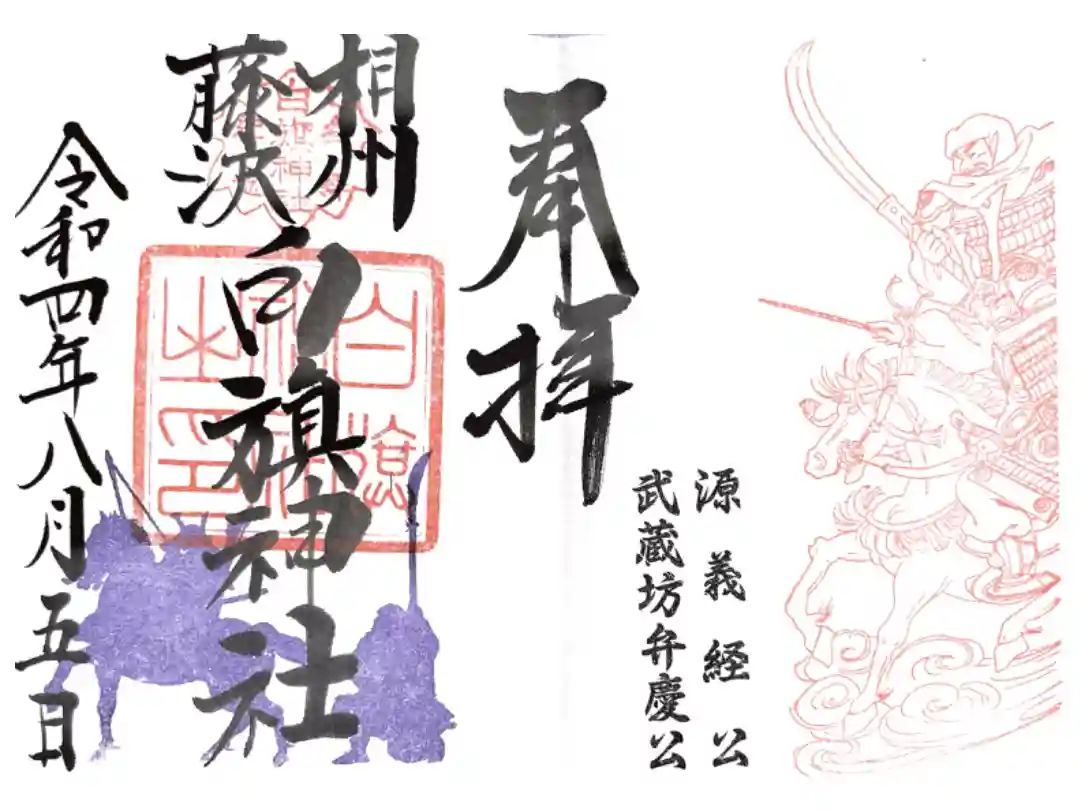 源義経公
武蔵坊弁慶公
奉拝
相州
藤沢
白旗神社
白旗神社之印
白旗神社
令和四年八月五日